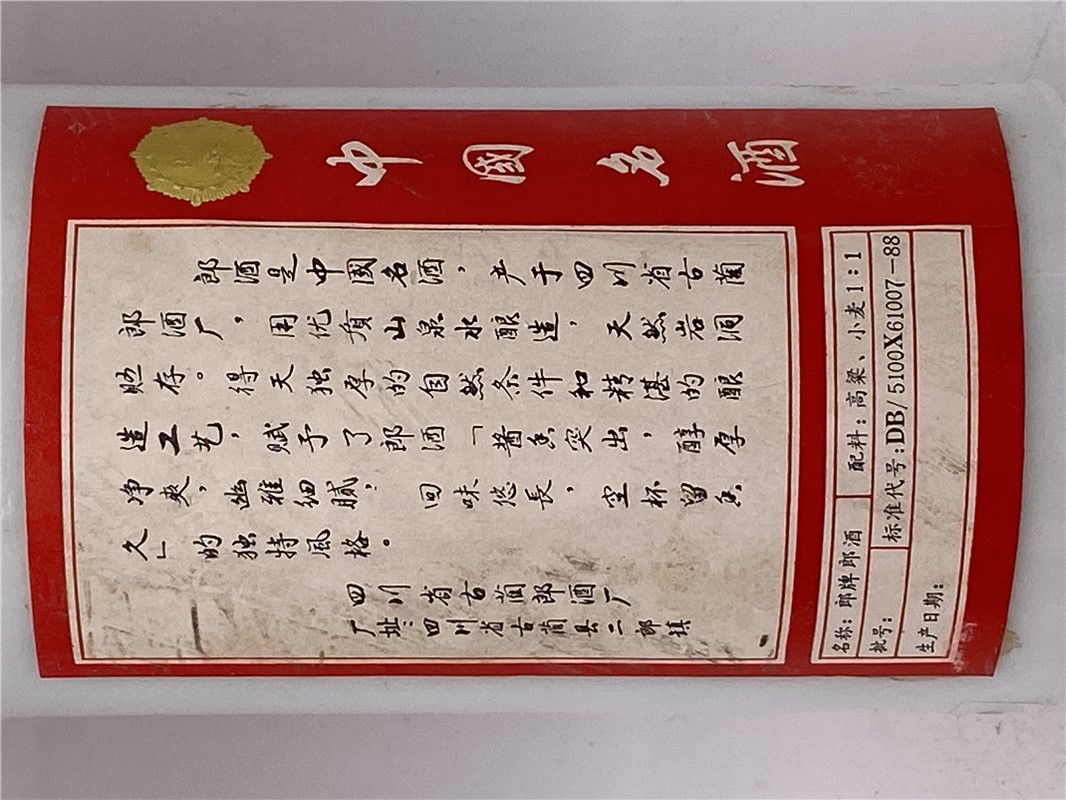 中國名酒
郎酒是中國名酒，产于四川省古蔺
郎酒厂，用优质山泉水酿造，天然岩洞
贮存。得天独厚的自然条件和精湛的酿
造工艺，赋予了郎酒「酱香突出，醇厚
净爽，幽雅细腻；回味悠長，空杯留香
久」的独特風格。
四川省古蔺郎酒厂
厂址：四川省古蔺县二郎镇
名称：郎牌郎酒
配料：高粱、小麦1：1
批号：
标准代号：DB/5100X61007-88
生产日期：